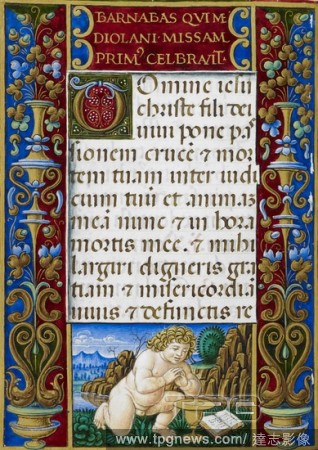 BARNABAS QVI ME
DIOLANI · MISSAM
PRIMꝰ CELBRAVIT ·
Domine iesu
christe fili dei
uiui pone pas
sionem crucē ⁊ mor
tem tuam inter iudi
cium tuū et animaʒ
meā nunc ⁊ in hora
mortis mee. ⁊ mihi
largiri digneris gra
tiam ⁊ misericordiā
uiuis ⁊ defunctis re
www.tpgnews.com/ 達志影像